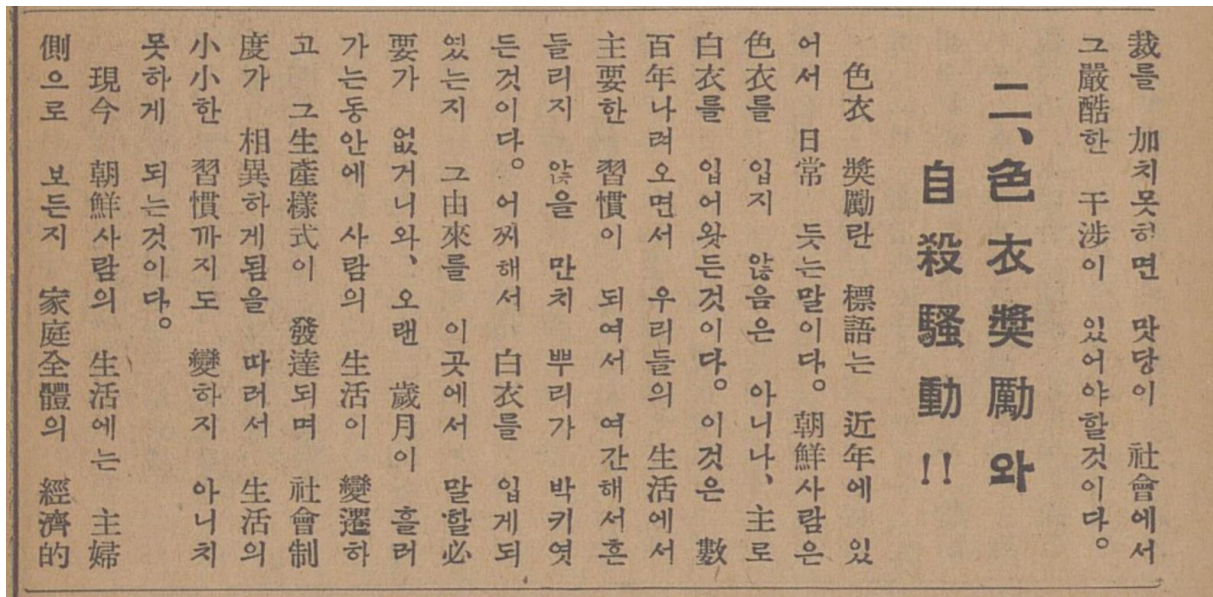 裁를 加치못하면 맛당이 社會에서
그嚴酷한 干涉이 있어야할것이다。
二、色衣奬勵와
自殺騷動!!
色衣 奬勵란 標語는 近年에 있
어서 日常 듯는말이다。朝鮮사람은
色衣를 입지 않음은 아니나、主로
白衣를 입어왓든것이다。이것은 數
百年나려오면서 우리들의 生活에서
主要한 習慣이 되여서 여간해서흔
들리지 않을 만치 뿌리가 박키엿
든것이다。어찌해서 白衣를 입게되
였는지 그由來를 이곳에서 말할必
要가 없거니와、오랜 歲月이 흘러
가는동안에 사람의 生活이 變遷하
고 그生產樣式이 發達되며 社會制
度가 相異하게됨을 따러서 生活의
小小한 習慣까지도 變하지 아니치
못하게 되는것이다。
現今 朝鮮사람의 生活에는 主婦
側으로 보든지 家庭全體의 經濟的